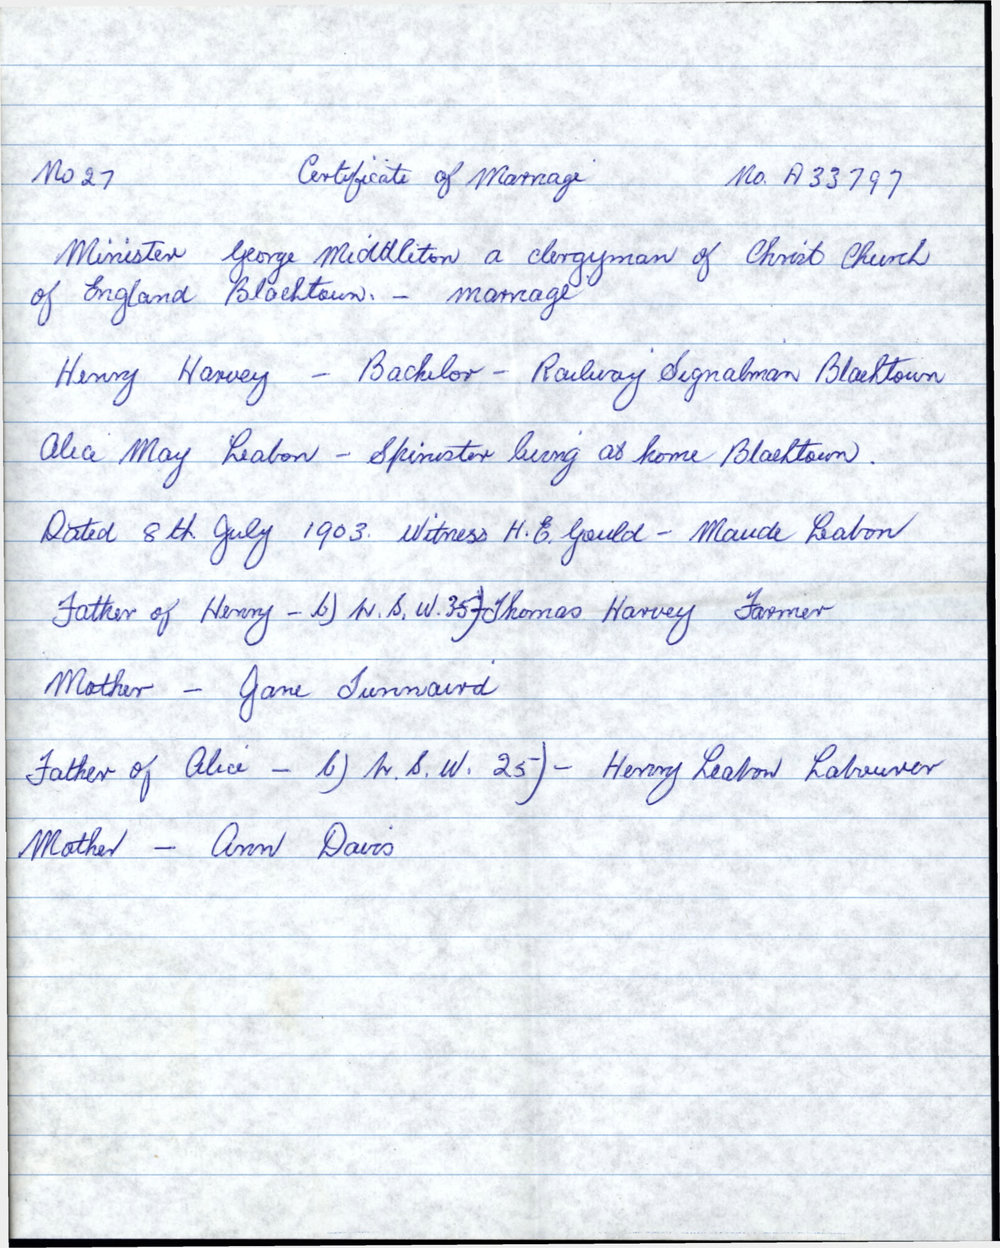 No 27 Certificate of Marriage No. A 33797
Minister George Middleton a clergyman of Christ Church
of England Blacktown. - marriage
Henry Harvey - Bachelor - Railway Signalman Blacktown
Alice May Leabon - Spinster living at home Blacktown.
Dated 8th July 1903. Witness H. E. Gould - Maude Leabon
Father of Henry - b) N. S. W. 35) - Thomas Harvey Farmer
Mother - Jane
Father of Alice - b) N. S. W. 25) - Henry Leabon Labourer
Mother - Ann Davis